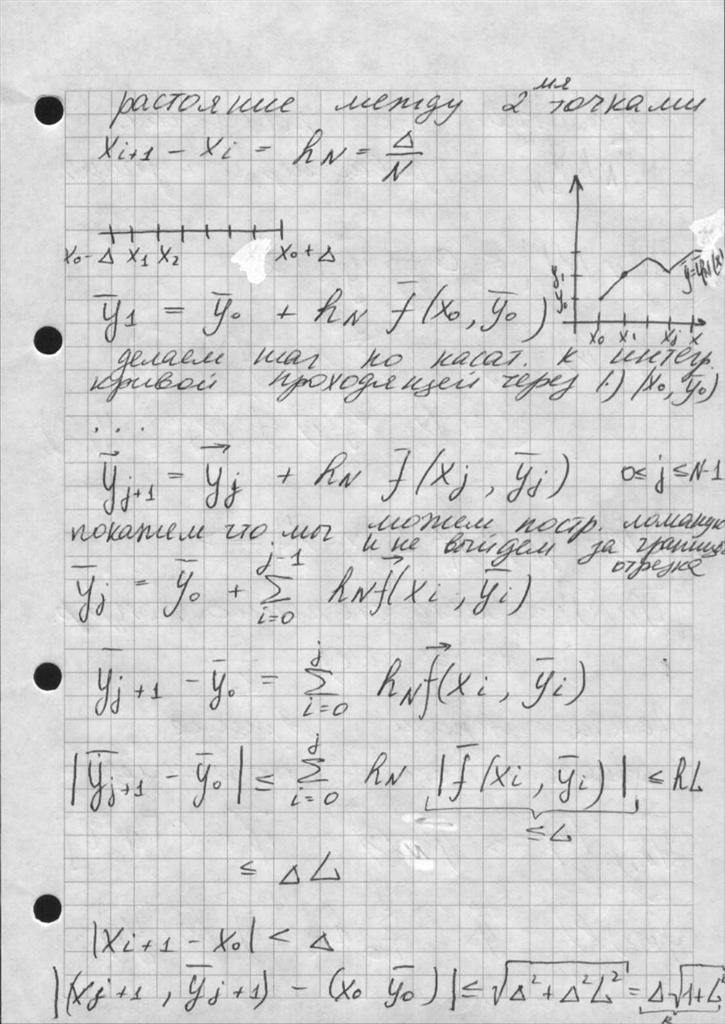 растояние между 2мя точками
x_{i+1} - x_i = h_N = Δ/N
x_0 - Δ x_1 x_2 x_0 + Δ
y_1
y_0
x_0 x_1 x_j x
ȳ_1 = ȳ_0 + h_N f̄(x_0, ȳ_0)
делаем шаг по касат. к интегр.
кривой проходящей через (·) (x_0, ȳ_0)
...
ȳ_{j+1} = y⃗_j + h_N f̄(x_j, ȳ_j) 0 ≤ j ≤ N-1
покажем что мы можем постр. ломаную
и не выйдем за границы
отрезка
ȳ_j = ȳ_0 + Σ_{i=0}^{j-1} h_N f⃗(x_i, ȳ_i)
ȳ_{j+1} - ȳ_0 = Σ_{i=0}^{j} h_N f⃗(x_i, ȳ_i)
|ȳ_{j+1} - ȳ_0| ≤ Σ_{i=0}^{j} h_N |f̄(x_i, ȳ_i)| ≤ hL
≤ L
≤ ΔL
|x_{i+1} - x_0| < Δ
|(x_{j+1}, ȳ_{j+1}) - (x_0 ȳ_0)| ≤ √(Δ² + Δ²L²) = Δ√(1+L²)